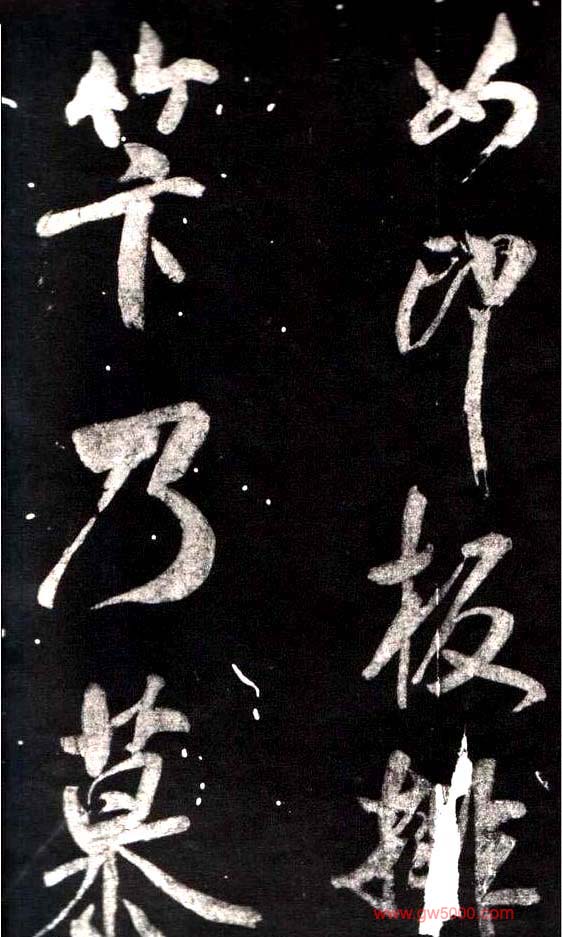 如印板排
笇乃慕
www.gw5000.com